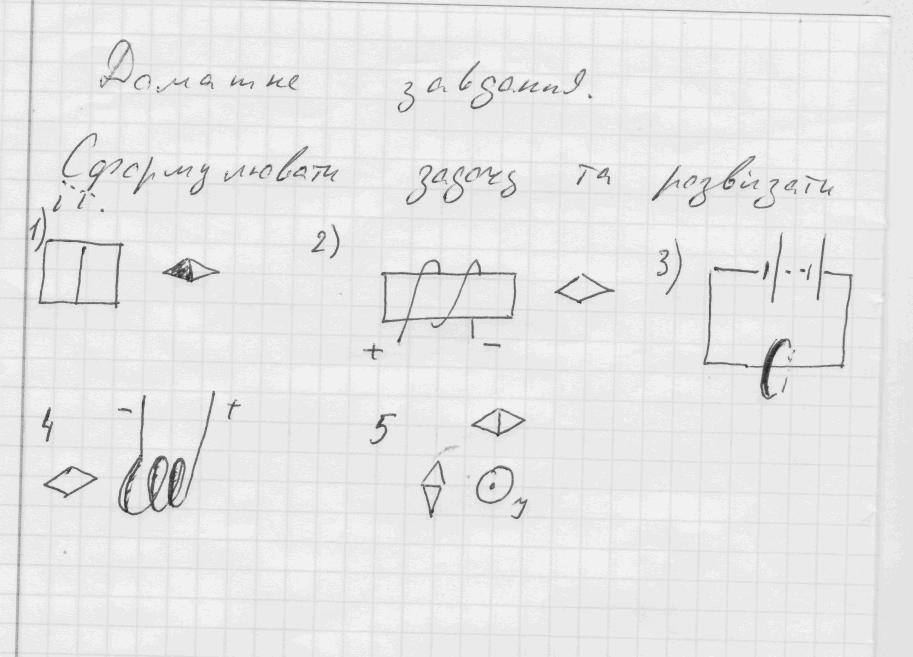 Домашнє завдання.
Сформулювати задачу та розвізати
її.
1)
2)
3)
+ -
4 - +
5
у